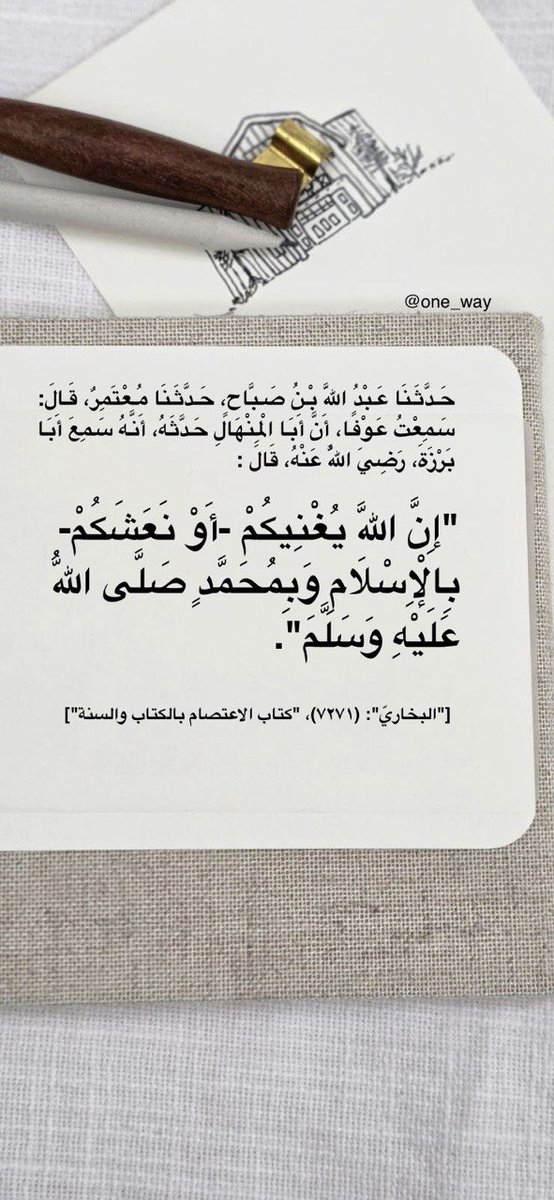 @one_way
حَدَّثَنَا عَبْدُ اللَّهِ بْنُ صَبَّاحٍ، حَدَّثَنَا مُعْتَمِرٌ، قَالَ:
سَمِعْتُ عَوْفًا، أَنَّ أَبَا الْمِنْهَالِ حَدَّثَهُ، أَنَّهُ سَمِعَ أَبَا
بَرْزَةَ، رَضِيَ اللَّهُ عَنْهُ، قَالَ :
"إِنَّ اللَّهَ يُغْنِيكُمْ -أَوْ نَعَشَكُمْ-
بِالْإِسْلَامِ وَبِمُحَمَّدٍ صَلَّى اللَّهُ
عَلَيْهِ وَسَلَّمَ".
["البخاريّ": (٧٢٧١)، "كتاب الاعتصام بالكتاب والسنة"]